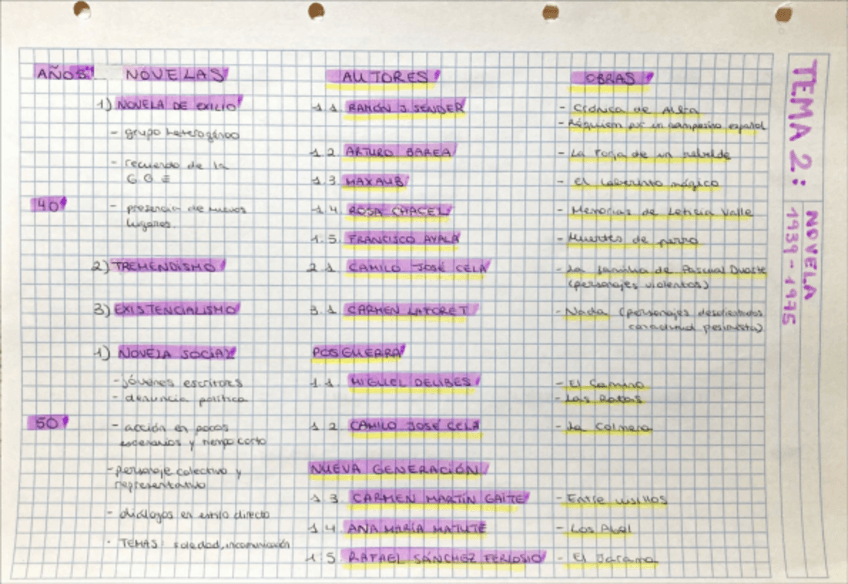 AÑOS NOVELAS AUTORES OBRAS
TEMA 2: NOVELA
1939-1975
1) NOVELA DE EXILIO 1.1 RAMÓN J. SENDER - Crónica de Alba
- Réquiem por un campesino español
- grupo heterogéneo
1.2 ARTURO BAREA - La forja de un rebelde
- recuerdo de la
G.C.E
1.3 MAX AUB - El laberinto mágico
40 - presencia de nuevos
lugares
1.4 ROSA CHACEL - Memorias de Leticia Valle
1.5. FRANCISCO AYALA - Muertes de perro
2) TREMENDISMO 2.1 CAMILO JOSÉ CELA - La familia de Pascual Duarte
(personajes violentos)
3) EXISTENCIALISMO 3.1 CARMEN LAFORET - Nada (personajes
pesimista)
1) NOVELA SOCIAL POSGUERRA
- jóvenes escritores
- denuncia política
1.1 MIGUEL DELIBES - El Camino
- Las Ratas
50 - acción en pocos
escenarios y tiempo corto
1.2 CAMILO JOSÉ CELA - La Colmena
- personaje colectivo y
representativo
NUEVA GENERACIÓN
1.3 CARMEN MARTÍN GAITE - Entre visillos
- diálogos en estilo directo
1.4 ANA MARÍA MATUTE - Los Abel
- TEMAS: soledad, incomunicación
1.5 RAFAEL SÁNCHEZ FERLOSIO - El Jarama